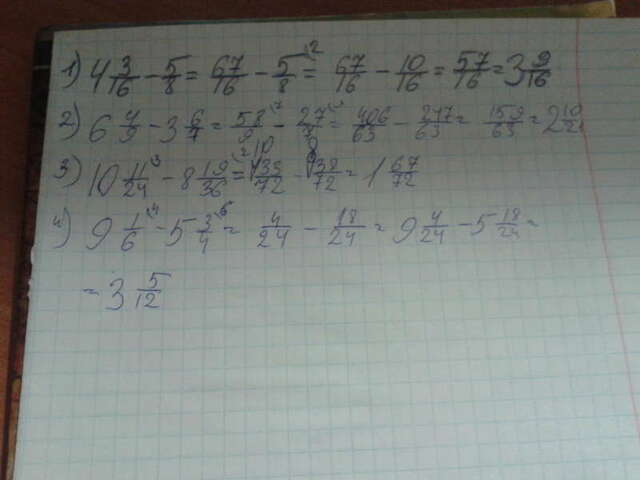 1) 4 3/16 - 5/8 = 67/16 - 5/8 ² = 67/16 - 10/16 = 57/16 = 3 9/16
2) 6 4/9 - 3 6/7 = 58/9 ⁷ - 27/7 ⁹ = 406/63 - 247/63 = 159/63 = 2 10/21
3) 10 11/24 ³ - 8 19/36 ² = 10 33/72 - 8 38/72 = 1 67/72
4) 9 1/6 ⁴ - 5 3/4 ⁶ = 4/24 - 18/24 = 9 4/24 - 5 18/24 =
= 3 5/12